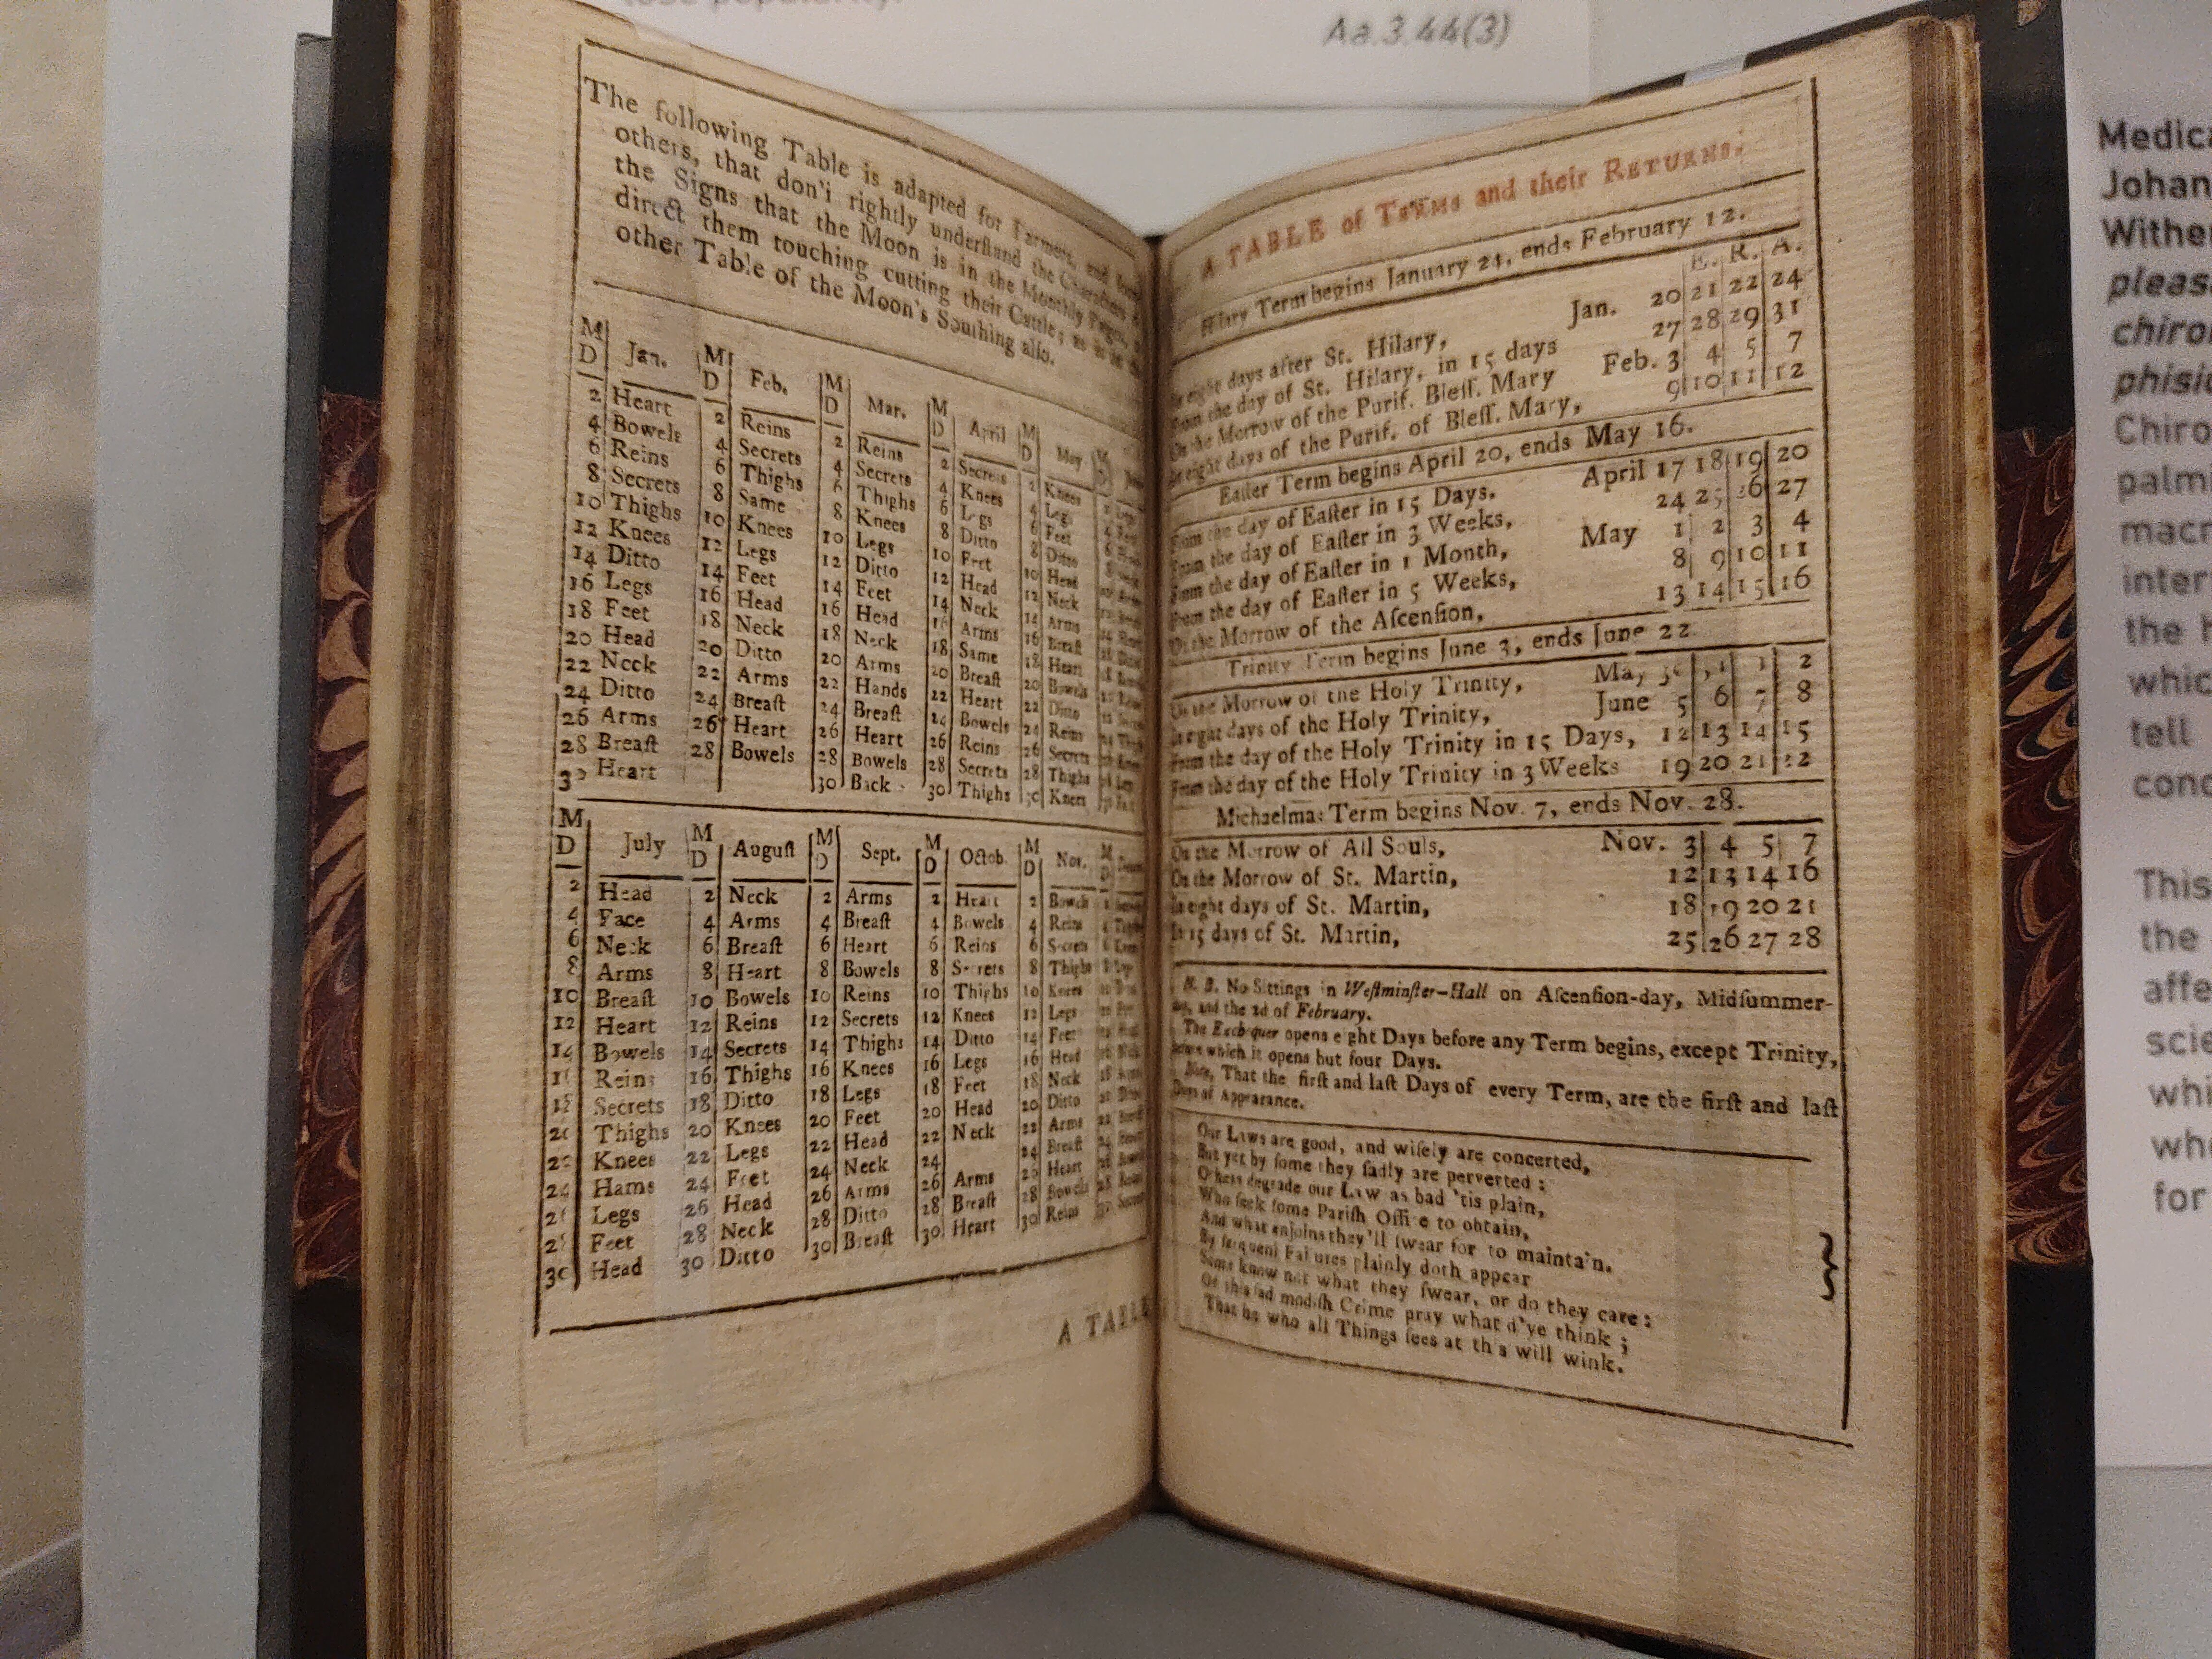 Aa.3.44(3)
The following Table is adapted for Farmers, and
others, that don'i rightly underſtand the Characters
the Signs that the Moon is in the Monthly Pages,
direct them touching cutting their Cattle; as is in the
other Table of the Moon's Southing alſo.
M D Jan. M D Feb. M D Mar. M D April M D May M D
2 Heart 2 Reins 2 Reins 2 Secrets 2 Knees
4 Bowels 4 Secrets 4 Secrets 4 Knees 4 Legs
6 Reins 6 Thighs 6 Thighs 6 Legs 6 Feet
8 Secrets 8 Same 8 Knees 8 Ditto 8 Ditto
10 Thighs 10 Knees 10 Legs 10 Feet 10 Head
12 Knees 12 Legs 12 Ditto 12 Head 12 Neck
14 Ditto 14 Feet 14 Feet 14 Neck 14 Arms
16 Legs 16 Head 16 Head 16 Arms 16 Breaſt
18 Feet 18 Neck 18 Neck 18 Same 18 Heart
20 Head 20 Ditto 20 Arms 20 Breaſt 20 Bowels
22 Neck 22 Arms 22 Hands 22 Heart 22 Ditto
24 Ditto 24 Breaſt 24 Breaſt 24 Bowels 24 Reins
26 Arms 26 Heart 26 Heart 26 Reins 26 Secrets
28 Breaſt 28 Bowels 28 Bowels 28 Secrets 28 Thighs
30 Heart 30 Back 30 Thighs 30 Knees
M D July M D Auguſt M D Sept. M D Octob. M D Nov. M D
2 Head 2 Neck 2 Arms 2 Heart 2 Bowels
4 Face 4 Arms 4 Breaſt 4 Bowels 4 Reins
6 Neck 6 Breaſt 6 Heart 6 Reins 6 Secrets
8 Arms 8 Heart 8 Bowels 8 Secrets 8 Thighs
10 Breaſt 10 Bowels 10 Reins 10 Thighs 10 Knees
12 Heart 12 Reins 12 Secrets 12 Knees 12 Legs
14 Bowels 14 Secrets 14 Thighs 14 Ditto 14 Feet
16 Reins 16 Thighs 16 Knees 16 Legs 16 Head
18 Secrets 18 Ditto 18 Legs 18 Feet 18 Neck
20 Thighs 20 Knees 20 Feet 20 Head 20 Ditto
22 Knees 22 Legs 22 Head 22 Neck 22 Arms
24 Hams 24 Feet 24 Neck 24 24 Breaſt
26 Legs 26 Head 26 Arms 26 Arms 26 Heart
28 Feet 28 Neck 28 Ditto 28 Breaſt 28 Bowels
30 Head 30 Ditto 30 Breaſt 30 Heart 30 Reins
A TABLE
A TABLE of TERMS and their RETURNS.
Hilary Term begins January 24, ends February 12.
E. R. A.
In eight days after St. Hilary, Jan. 20 21 22 24
From the day of St. Hilary, in 15 days 27 28 29 31
On the Morrow of the Purif. Bleſſ. Mary Feb. 3 4 5 7
In eight days of the Purif. of Bleſſ. Mary, 9 10 11 12
Eaſter Term begins April 20, ends May 16.
From the day of Eaſter in 15 Days, April 17 18 19 20
From the day of Eaſter in 3 Weeks, 24 25 26 27
From the day of Eaſter in 1 Month, May 1 2 3 4
From the day of Eaſter in 5 Weeks, 8 9 10 11
On the Morrow of the Aſcenſion, 13 14 15 16
Trinity Term begins June 3, ends June 22.
On the Morrow of the Holy Trinity, May 30 31 1 2
In eight days of the Holy Trinity, June 5 6 7 8
From the day of the Holy Trinity in 15 Days, 12 13 14 15
From the day of the Holy Trinity in 3 Weeks 19 20 21 22
Michaelmas Term begins Nov. 7, ends Nov. 28.
On the Morrow of All Souls, Nov. 3 4 5 7
On the Morrow of St. Martin, 12 13 14 16
In eight days of St. Martin, 18 19 20 21
In 15 days of St. Martin, 25 26 27 28
N. B. No Sittings in Weſtminſter-Hall on Aſcenſion-day, Midſummer-
day, and the 2d of February.
The Exchequer opens eight Days before any Term begins, except Trinity,
before which it opens but four Days.
Note, That the firſt and laſt Days of every Term, are the firſt and laſt
Days of Appearance.
Our Laws are good, and wiſely are concerted,
But yet by ſome they ſadly are perverted :
Others degrade our Law as bad 'tis plain,
Who ſeek ſome Pariſh Office to obtain,
And what enjoins they'll ſwear for to maintain.
By frequent Failures plainly doth appear
Some know not what they ſwear, or do they care :
Of this ſad modiſh Crime pray what d'ye think ;
That he who all Things ſees at this will wink.
Medica
Johan
Wither
pleas
chiro
phisi
Chiro
palmi
macr
inter
the h
which
tell
conc
This
the
affe
scie
whi
whe
for